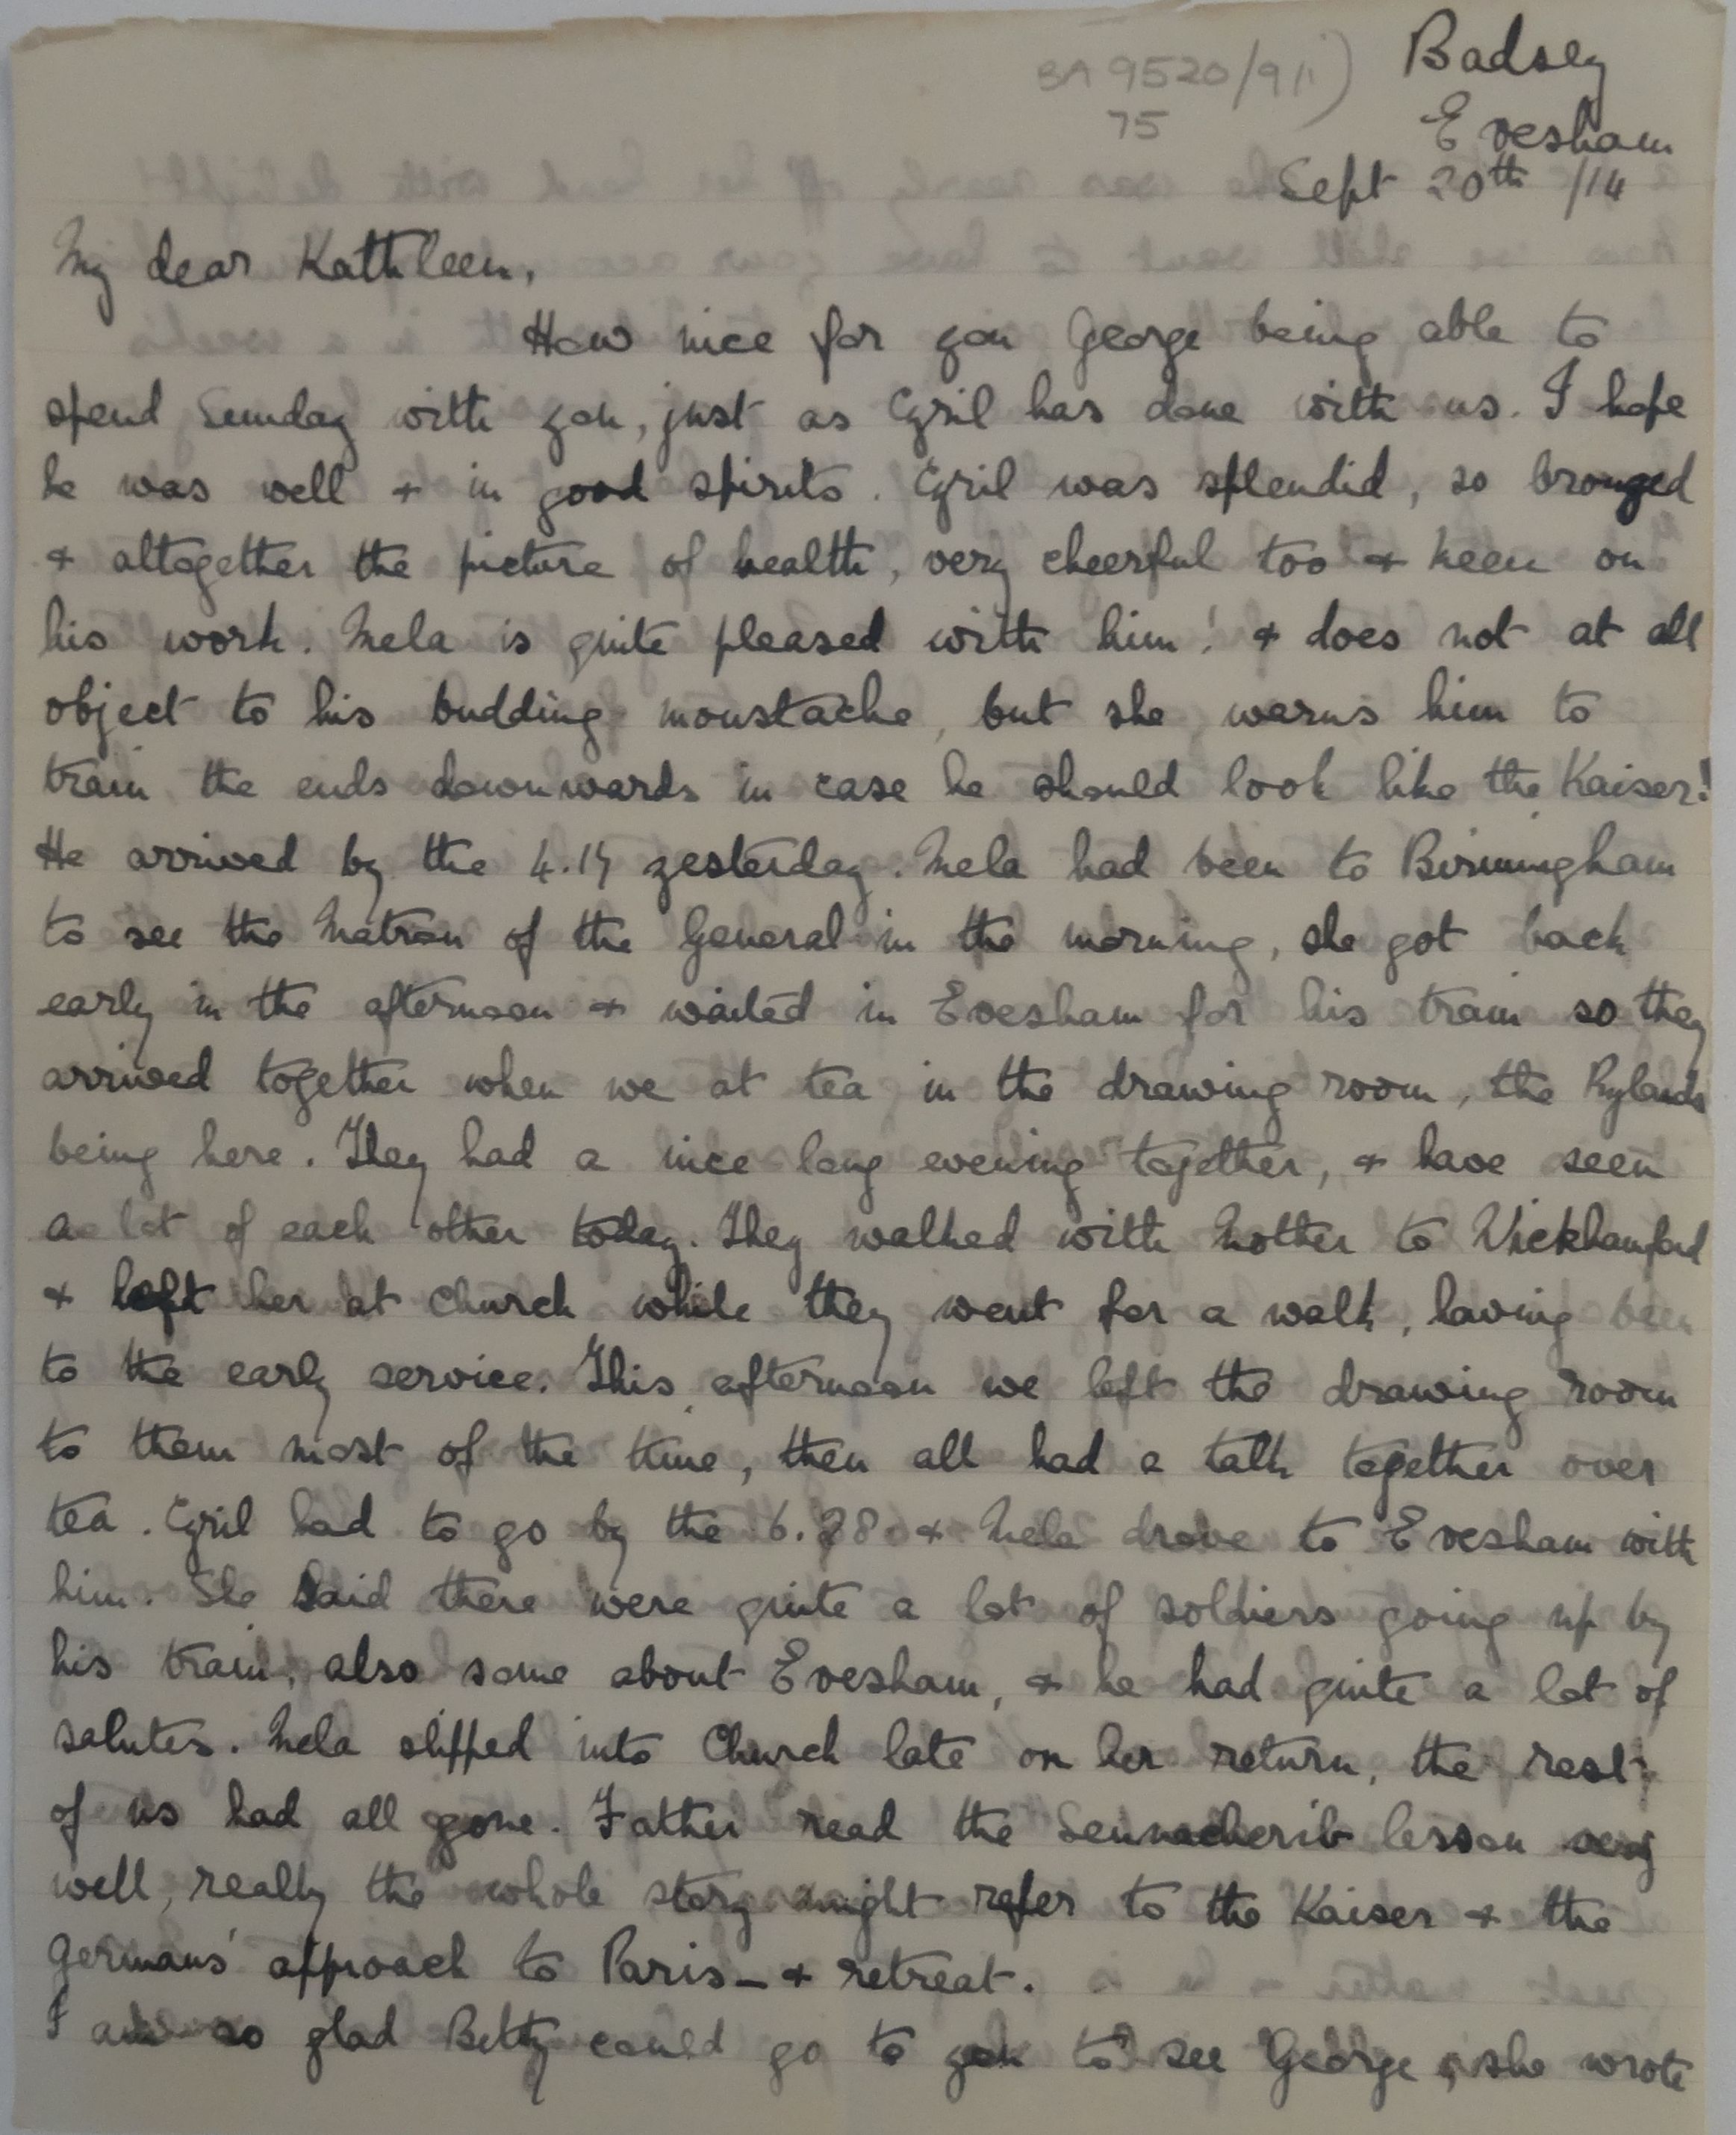 BA 9520/9(i)
75
Badsey
Evesham
Sept 20th /14
My dear Kathleen,
How nice for you George being able to
spend Sunday with you, just as Cyril has done with us. I hope
he was well + in good spirits. Cyril was splendid, so bronzed
+ altogether the picture of health, very cheerful too + keen on
his work. Mela is quite pleased with him! + does not at all
object to his budding moustache, but she warns him to
train the ends downwards in case he should look like the Kaiser!
He arrived by the 4.15 yesterday. Mela had been to Birmingham
to see the Matron of the General in the morning, she got back
early in the afternoon + waited in Evesham for his train so they
arrived together when we at tea in the drawing room, the Rylands
being here. They had a nice long evening together, + have seen
a lot of each other today. They walked with Mother to Wickhamford
+ left her at church while they went for a walk, having been
to the early service. This afternoon we left the drawing room
to them most of the time, then all had a talk together over
tea. Cyril had to go by the 6.28 + Mela drove to Evesham with
him. She said there were quite a lot of soldiers going up by
his train, also some about Evesham, + he had quite a lot of
salutes. Mela slipped into Church late on her return, the rest
of us had all gone. Father read the Sennacherib lesson very
well, really the whole story might refer to the Kaiser + the
Germans' approach to Paris – + retreat.
I am so glad Betty could go to you to see George, she wrote